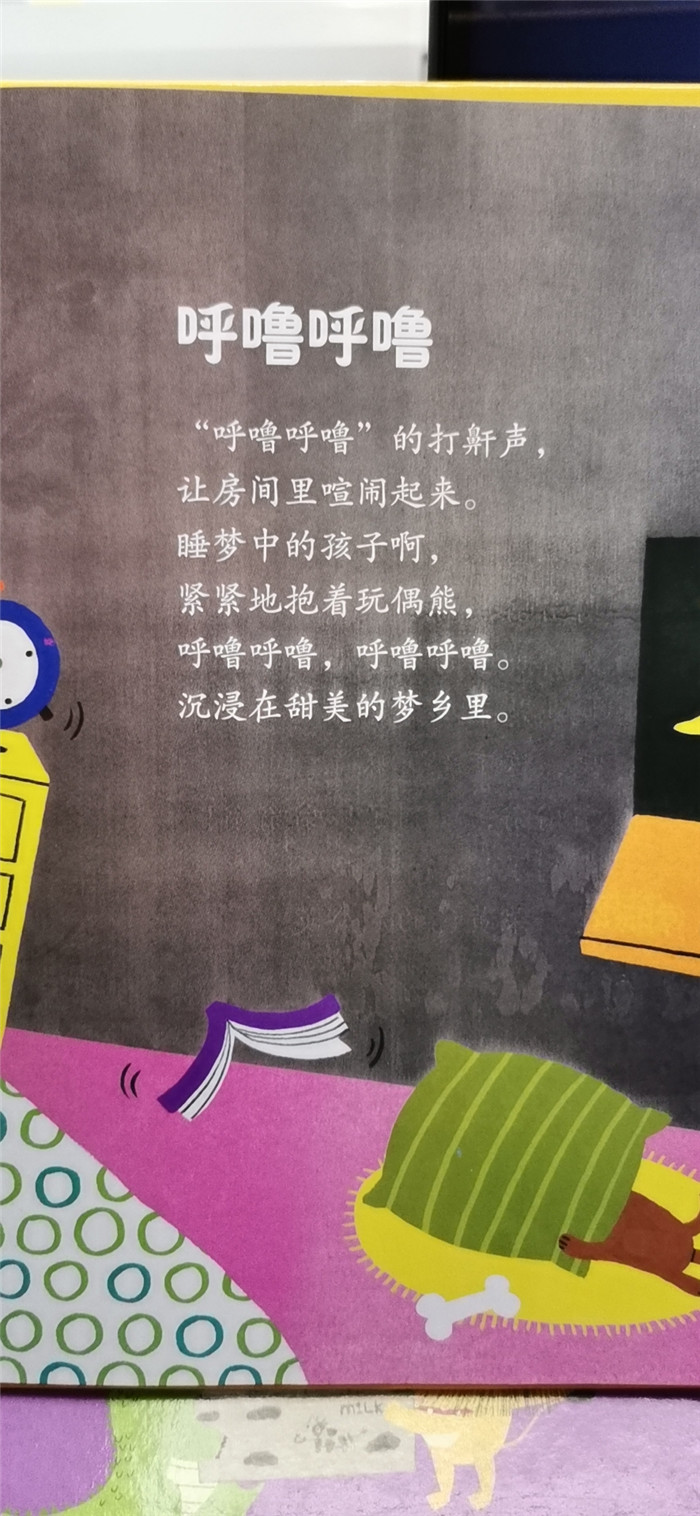 呼噜呼噜
“呼噜呼噜”的打鼾声，
让房间里喧闹起来。
睡梦中的孩子啊，
紧紧地抱着玩偶熊，
呼噜呼噜，呼噜呼噜。
沉浸在甜美的梦乡里。
MILK